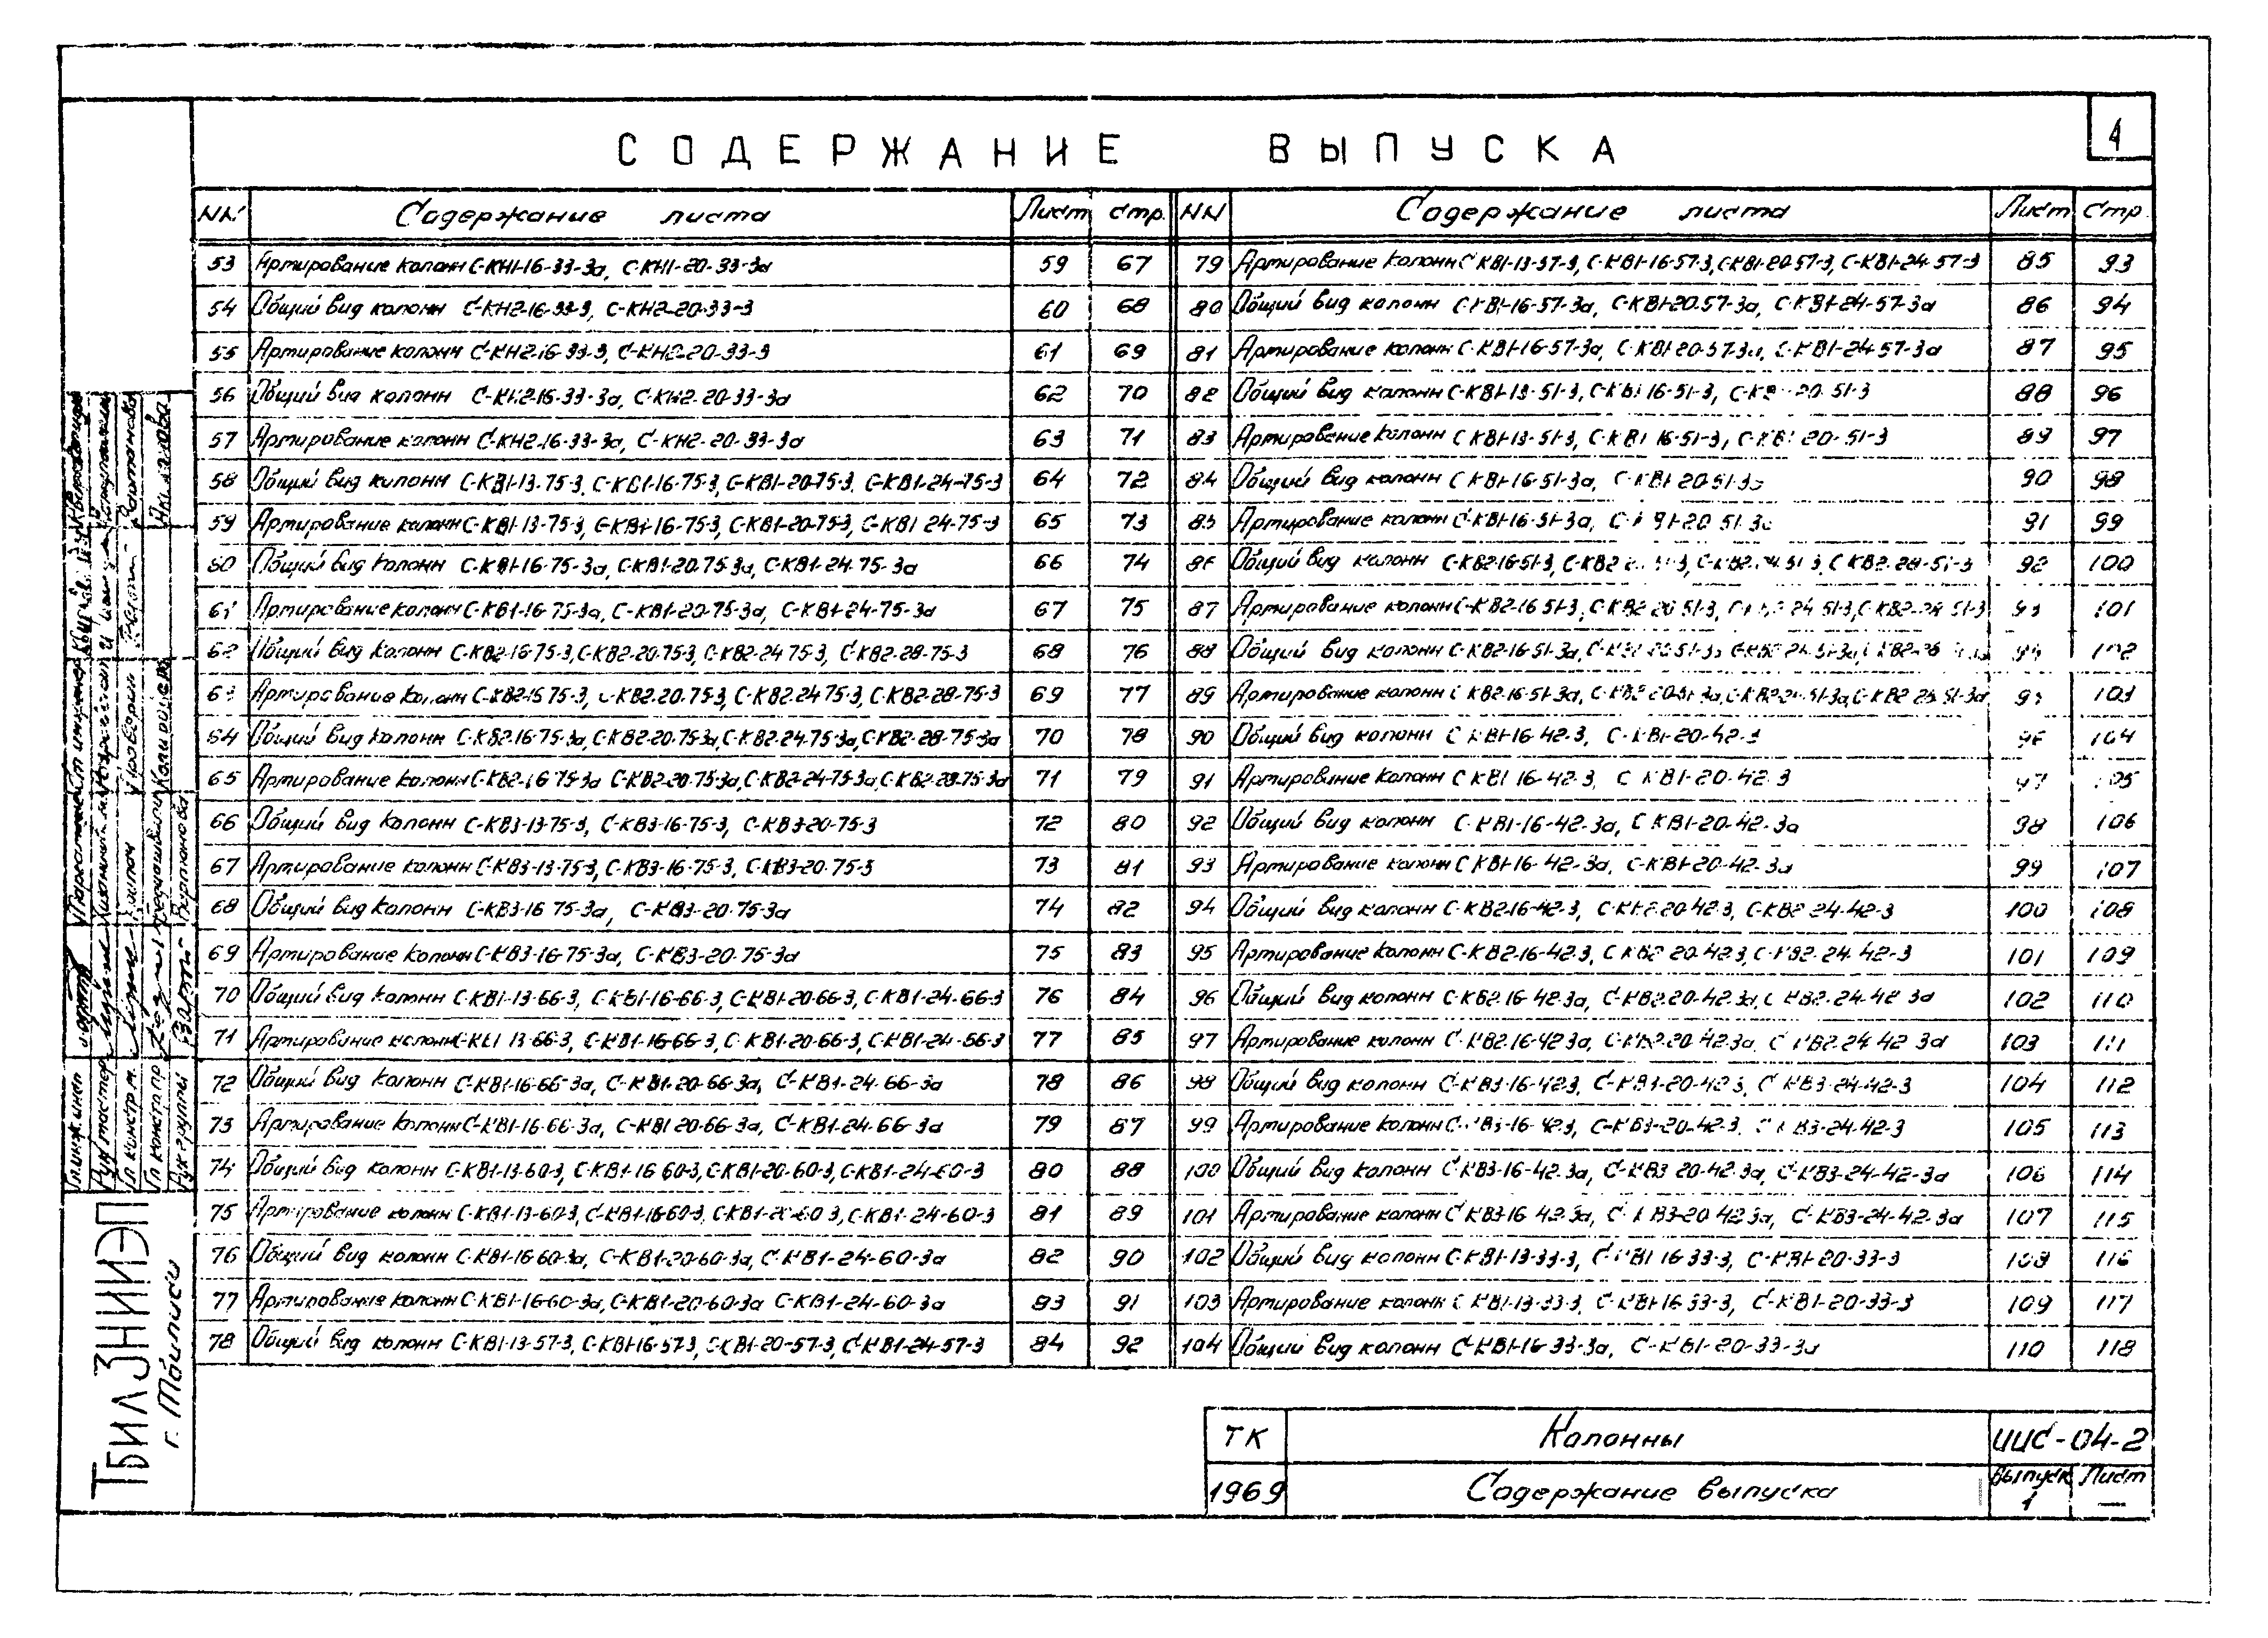 СОДЕРЖАНИЕ ВЫПУСКА
4
NN Содержание листа Лист Стр.
53 Армирование колонн С-КН1-16-33-3а, С-КН1-20-33-3а 59 67
54 Общий вид колонн С-КН2-16-33-3, С-КН2-20-33-3 60 68
55 Армирование колонн С-КН2-16-33-3, С-КН2-20-33-3 61 69
56 Общий вид колонн С-КН2-16-33-3а, С-КН2-20-33-3а 62 70
57 Армирование колонн С-КН2-16-33-3а, С-КН2-20-33-3а 63 71
58 Общий вид колонн С-КВ1-13-75-3, С-КВ1-16-75-3, С-КВ1-20-75-3, С-КВ1-24-75-3 64 72
59 Армирование колонн С-КВ1-13-75-3, С-КВ1-16-75-3, С-КВ1-20-75-3, С-КВ1-24-75-3 65 73
60 Общий вид колонн С-КВ1-16-75-3а, С-КВ1-20-75-3а, С-КВ1-24-75-3а 66 74
61 Армирование колонн С-КВ1-16-75-3а, С-КВ1-20-75-3а, С-КВ1-24-75-3а 67 75
62 Общий вид колонн С-КВ2-16-75-3, С-КВ2-20-75-3, С-КВ2-24-75-3, С-КВ2-28-75-3 68 76
63 Армирование колонн С-КВ2-16-75-3, С-КВ2-20-75-3, С-КВ2-24-75-3, С-КВ2-28-75-3 69 77
64 Общий вид колонн С-КВ2-16-75-3а, С-КВ2-20-75-3а, С-КВ2-24-75-3а, С-КВ2-28-75-3а 70 78
65 Армирование колонн С-КВ2-16-75-3а С-КВ2-20-75-3а, С-КВ2-24-75-3а, С-КВ2-28-75-3а 71 79
66 Общий вид колонн С-КВ3-13-75-3, С-КВ3-16-75-3, С-КВ3-20-75-3 72 80
67 Армирование колонн С-КВ3-13-75-3, С-КВ3-16-75-3, С-КВ3-20-75-3 73 81
68 Общий вид колонн С-КВ3-16-75-3а, С-КВ3-20-75-3а 74 82
69 Армирование колонн С-КВ3-16-75-3а, С-КВ3-20-75-3а 75 83
70 Общий вид колонн С-КВ1-13-66-3, С-КВ1-16-66-3, С-КВ1-20-66-3, С-КВ1-24-66-3 76 84
71 Армирование колонн С-КВ1-13-66-3, С-КВ1-16-66-3, С-КВ1-20-66-3, С-КВ1-24-66-3 77 85
72 Общий вид колонн С-КВ1-16-66-3а, С-КВ1-20-66-3а, С-КВ1-24-66-3а 78 86
73 Армирование колонн С-КВ1-16-66-3а, С-КВ1-20-66-3а, С-КВ1-24-66-3а 79 87
74 Общий вид колонн С-КВ1-13-60-3, С-КВ1-16-60-3, С-КВ1-20-60-3, С-КВ1-24-60-3 80 88
75 Армирование колонн С-КВ1-13-60-3, С-КВ1-16-60-3, С-КВ1-20-60-3, С-КВ1-24-60-3 81 89
76 Общий вид колонн С-КВ1-16-60-3а, С-КВ1-20-60-3а, С-КВ1-24-60-3а 82 90
77 Армирование колонн С-КВ1-16-60-3а, С-КВ1-20-60-3а С-КВ1-24-60-3а 83 91
78 Общий вид колонн С-КВ1-13-57-3, С-КВ1-16-57-3, С-КВ1-20-57-3, С-КВ1-24-57-3 84 92
NN Содержание листа Лист Стр.
79 Армирование колонн С-КВ1-13-57-3, С-КВ1-16-57-3, С-КВ1-20-57-3, С-КВ1-24-57-3 85 93
80 Общий вид колонн С-КВ1-16-57-3а, С-КВ1-20-57-3а, С-КВ1-24-57-3а 86 94
81 Армирование колонн С-КВ1-16-57-3а, С-КВ1-20-57-3а, С-КВ1-24-57-3а 87 95
82 Общий вид колонн С-КВ1-13-51-3, С-КВ1-16-51-3, С-КВ1-20-51-3 88 96
83 Армирование колонн С-КВ1-13-51-3, С-КВ1-16-51-3, С-КВ1-20-51-3 89 97
84 Общий вид колонн С-КВ1-16-51-3а, С-КВ1-20-51-3а 90 98
85 Армирование колонн С-КВ1-16-51-3а, С-КВ1-20-51-3а 91 99
86 Общий вид колонн С-КВ2-16-51-3, С-КВ2-20-51-3, С-КВ2-24-51-3, С-КВ2-28-51-3 92 100
87 Армирование колонн С-КВ2-16-51-3, С-КВ2-20-51-3, С-КВ2-24-51-3, С-КВ2-28-51-3 93 101
88 Общий вид колонн С-КВ2-16-51-3а, С-КВ2-20-51-3а С-КВ2-24-51-3а, С-КВ2-28-51-3а 94 102
89 Армирование колонн С-КВ2-16-51-3а, С-КВ2-20-51-3а, С-КВ2-24-51-3а, С-КВ2-28-51-3а 95 103
90 Общий вид колонн С-КВ1-16-42-3, С-КВ1-20-42-3 96 104
91 Армирование колонн С-КВ1-16-42-3, С-КВ1-20-42-3 97 105
92 Общий вид колонн С-КВ1-16-42-3а, С-КВ1-20-42-3а 98 106
93 Армирование колонн С-КВ1-16-42-3а, С-КВ1-20-42-3а 99 107
94 Общий вид колонн С-КВ2-16-42-3, С-КВ2-20-42-3, С-КВ2-24-42-3 100 108
95 Армирование колонн С-КВ2-16-42-3, С-КВ2-20-42-3, С-КВ2-24-42-3 101 109
96 Общий вид колонн С-КВ2-16-42-3а, С-КВ2-20-42-3а, С-КВ2-24-42-3а 102 110
97 Армирование колонн С-КВ2-16-42-3а, С-КВ2-20-42-3а, С-КВ2-24-42-3а 103 111
98 Общий вид колонн С-КВ3-16-42-3, С-КВ3-20-42-3, С-КВ3-24-42-3 104 112
99 Армирование колонн С-КВ3-16-42-3, С-КВ3-20-42-3, С-КВ3-24-42-3 105 113
100 Общий вид колонн С-КВ3-16-42-3а, С-КВ3-20-42-3а, С-КВ3-24-42-3а 106 114
101 Армирование колонн С-КВ3-16-42-3а, С-КВ3-20-42-3а, С-КВ3-24-42-3а 107 115
102 Общий вид колонн С-КВ1-13-33-3, С-КВ1-16-33-3, С-КВ1-20-33-3 108 116
103 Армирование колонн С-КВ1-13-33-3, С-КВ1-16-33-3, С-КВ1-20-33-3 109 117
104 Общий вид колонн С-КВ1-16-33-3а, С-КВ1-20-33-3а 110 118
ТК Колонны ИИС-04-2
1969 Содержание выпуска Выпуск 1 Лист —
ТбилЗНИИЭП
г. Тбилиси
Гл. инж. инст.
Рук. мастер.
Гл. констр. м.
Гл. констр. пр.
Рук. группы
Проверил
Копировала